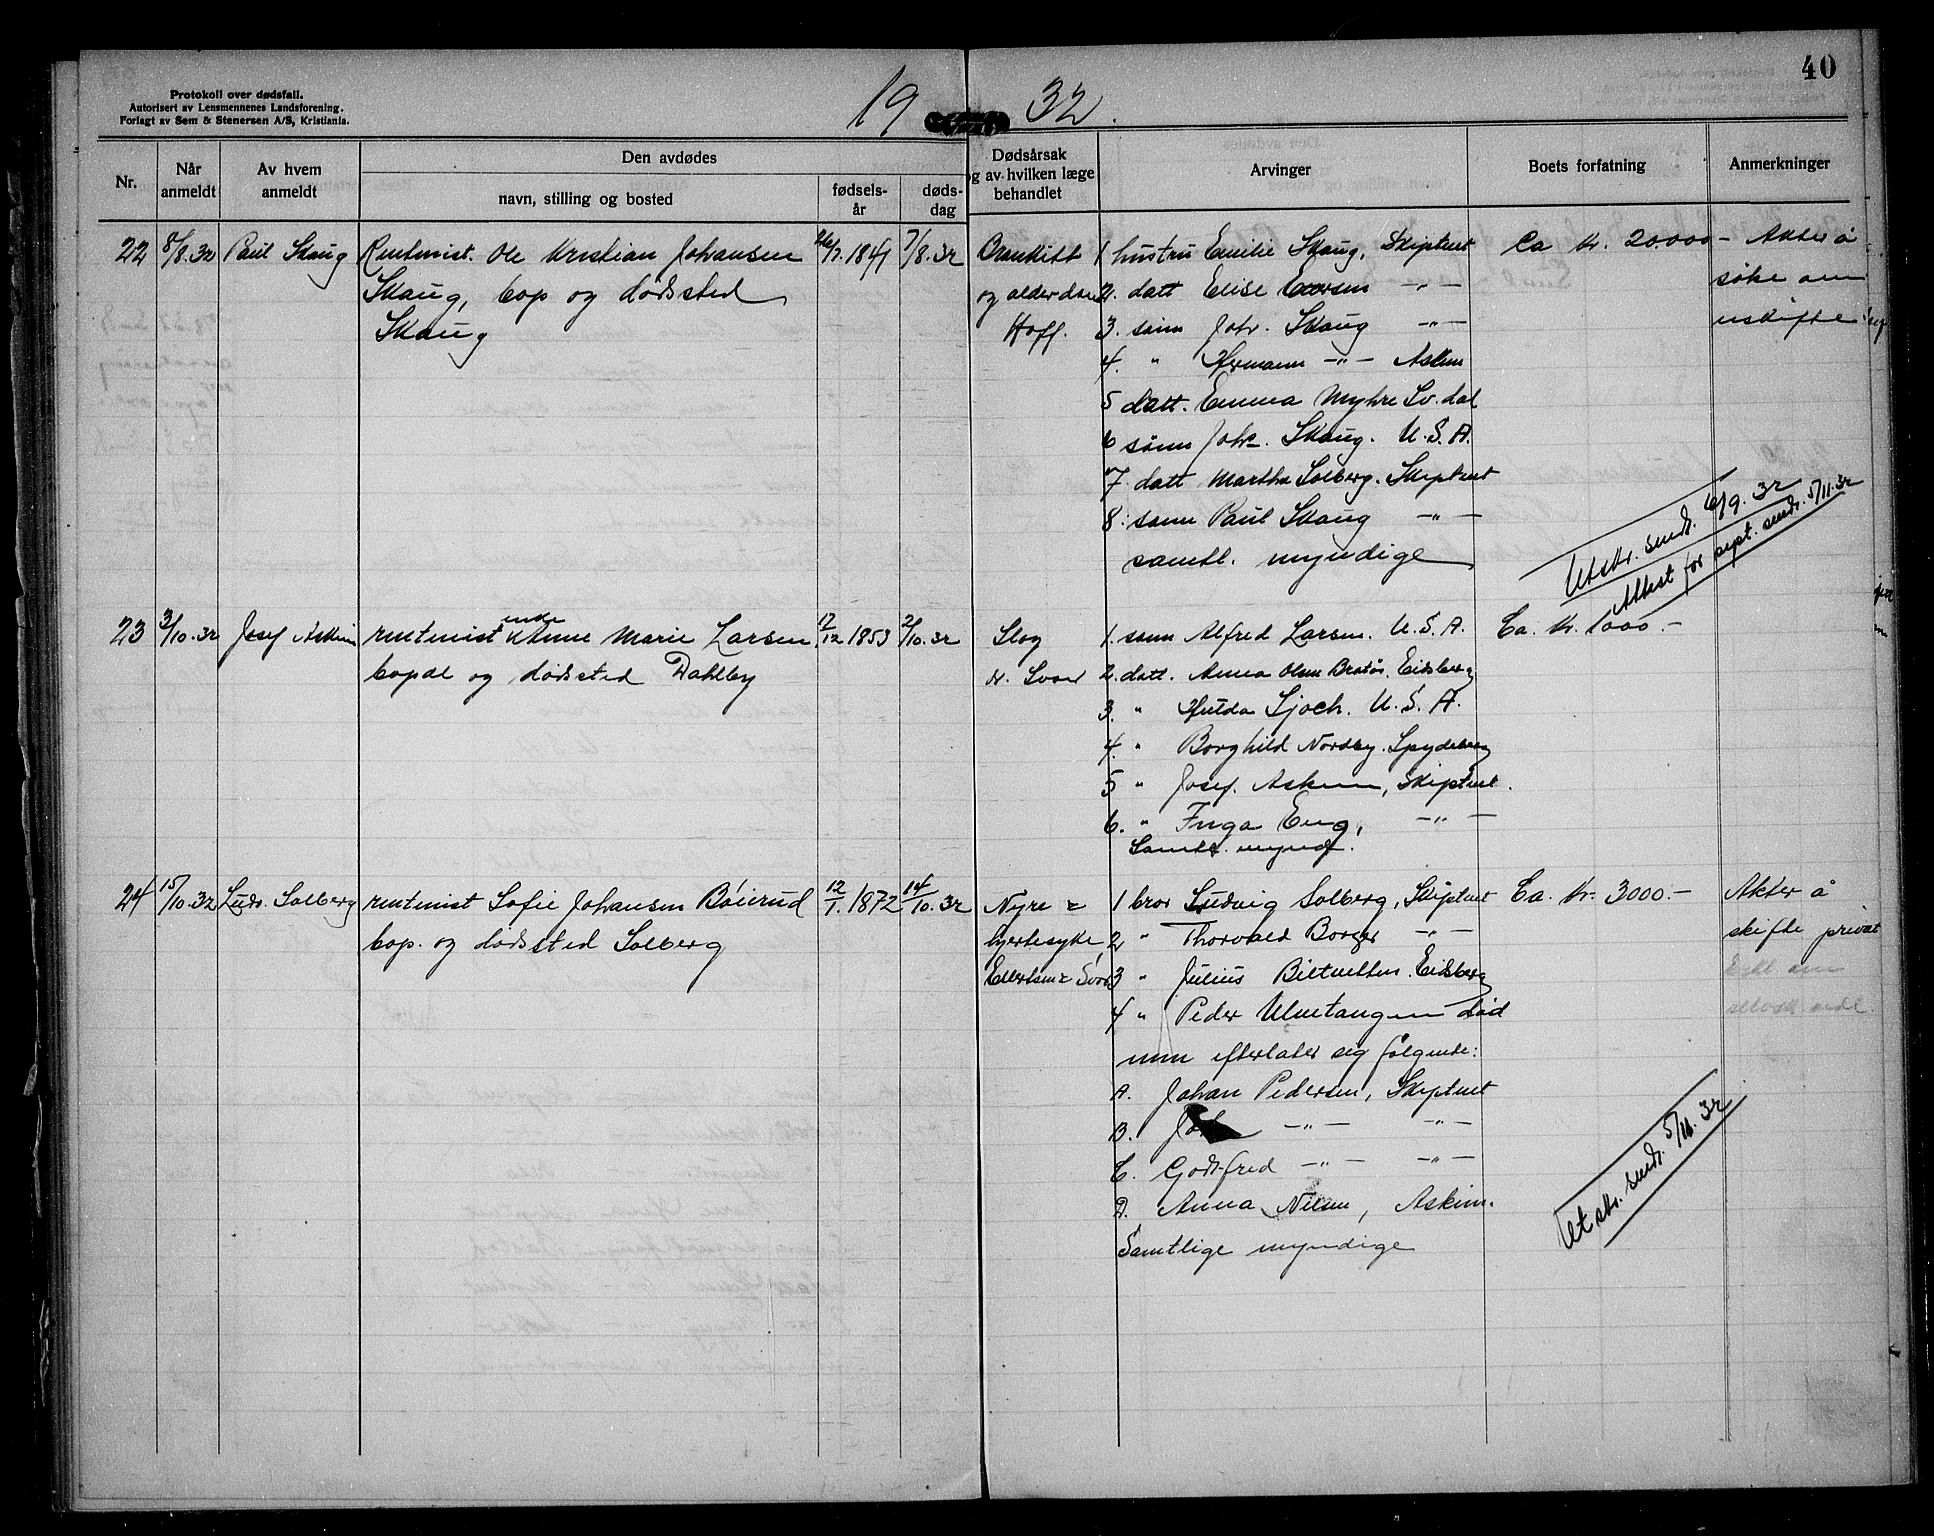 40
Protokoll over dødsfall.
Autorisert av Lensmennenes Landsforening.
Forlagt av Sem & Stenersen A/S, Kristiania.
19 32.
Nr.
Når anmeldt
Av hvem anmeldt
Den avdødes
navn, stilling og bosted
fødsels-år
døds-dag
Dødsårsak
og av hvilken læge
behandlet
Arvinger
Boets forfatning
Anmerkninger
22 8/8.32 Paul Skaug Rentenist. Ole Kristian Johansen 1841 7/8.32
Skaug, bop og dødssted
Skaug
og alderdom
Hoff.
1. hustru Emilie Skaug, Skiptvet
2. datt Elise -"-
3. sønn Joh. Skaug -"-
4. " Hermann -"- Askim
5 datt. Emma Myhre Sv.dal
6 sønn Joh. Skaug. U.S.A.
7. datt Martha Solberg. Skiptvet
8. sønn Paul Skaug -"-
samtl. myndige
Ca kr. 20000-
Akter å
søke om
uskifte
Utskr. sendt. 6/9.32
Attest for sept. sendt. 5/11.32
23 3/10.32 Josef Askim rentenist enke Anne Marie Larsen 12/12 1853 2/10.32
bopæl og dødssted Dahlby
Slag
1. sønn Alfred Larsen. U.S.A.
2. datt. Anna Olsen Bratås. Eidsberg
3. " Hulda Sjoch. U.S.A.
4. " Borghild Nordby. Spydeberg
5 " Josef. Askim, Skiptvet.
6. " Inga Eng, -"-
Samtl. mynd.
Ca. kr. 1000.-
24 15/10.32 Ludv. Solberg rentenist Sofie Johansen Böierud 12/1. 1872 14/10.32
bop. og dødssted Solberg
Nyre =
hjertesyke,
Ellertsen =
1 bror Ludvig Solberg, Skiptvet
2 " Thorvald Borger -"-
3 " Julius Biltvetten. Eidsberg
4 " Peder Ulvetangen død
men efterlater sig følgende:
A. Johan Pedersen, Skiptvet
B. -"- -"-
C. Godtfred -"- -"-
D. Anna Nilsen, Askim.
Samtlige myndige
Ca. kr. 3000.-
Akter å
skifte privat
Utskr. sendt. 5/11.32